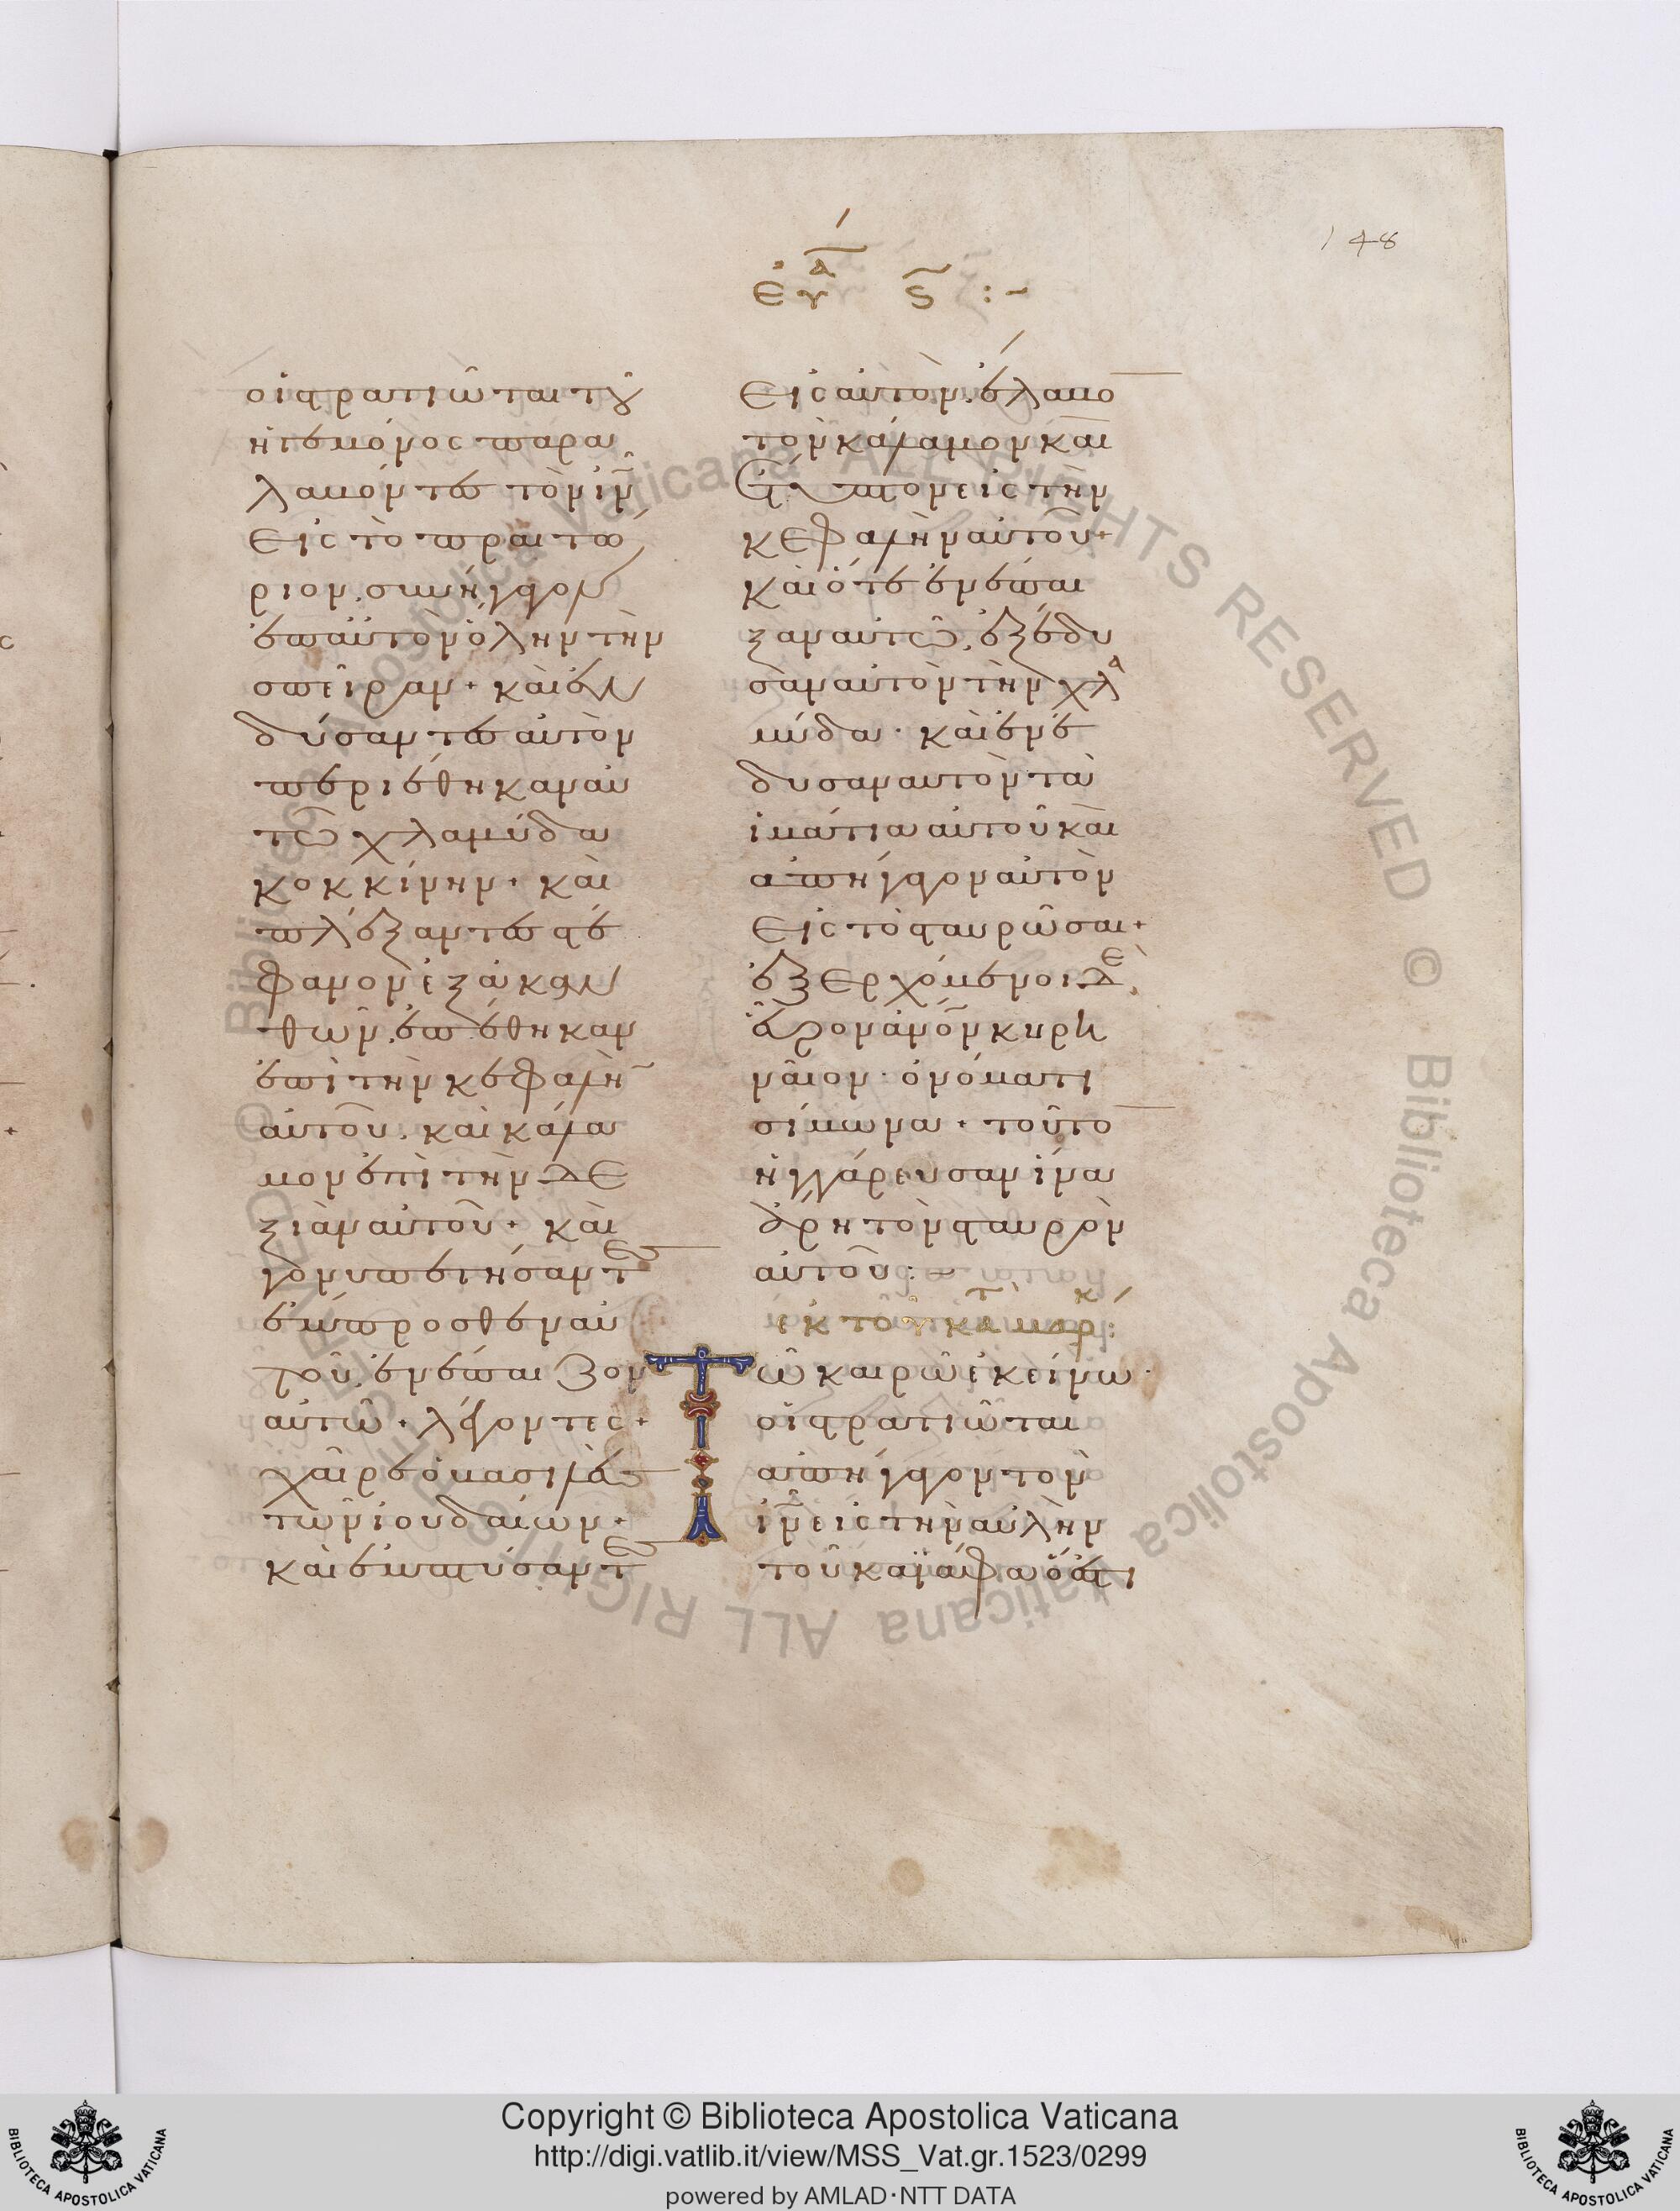 148
εὐα ς :~
οἱ στρατιῶται τοῦ
ἡγεμόνος παρα
λαβόντες τὸν ἰν
εἰς τὸ πραιτώ
ριον, συνήγαγον
ἐπ αὐτὸν ὅλην τὴν
σπεῖραν + καὶ ἐν
δύσαντες αὐτὸν
περιέθηκαν αὐ
τῶ χλαμύδα
κοκκίνην + καὶ
πλέξαντες στέ
φανον ἐξ ἀκαν
θῶν, ἐπέθηκαν
ἐπὶ τὴν κεφαλὴ
αὐτοῦ, καὶ κάλα
μον ἐπὶ τὴν δε
ξιὰν αὐτοῦ + καὶ
γονυπετήσαντες
ἔμπροσθεν αὐ
τοῦ, ἐνέπαιζον
αὐτῶ + λέγοντες +
χαῖρε ὁ βασιλεὺς
τῶν ἰουδαίων +
καὶ ἐμπτύσαντες
εἰς αὐτὸν, ἔλαβο
τὸν κάλαμον καὶ
ἔτυπτον εἰς τὴν
κεφαλὴν αὐτοῦ +
καὶ ὅτε ἐνέπαι
ξαν αὐτῶ, ἐξέδυ
σαν αὐτὸν τὴν χλα
μύδα · καὶ ἐνέ
δυσαν αὐτὸν τὰ
ἱμάτια αὐτοῦ καὶ
ἀπήγαγον αὐτὸν
εἰς τὸ σταυρῶσαι +
ἐξερχόμενοι δὲ,
εὗρον ἄνον κυρη
ναῖον · ὀνόματι
σίμωνα + τοῦτο
ἠγγάρευσαν ἵνα
ἄρη τὸν σταυρὸν
αὐτοῦ :~
ἐκ τοῦ κατ μαρκ :
Τῶ καιρῶ ἐκείνω ·
οἱ στρατιῶται
ἀπήγαγον τὸν
ἰν εἰς τὴν αὐλὴν
τοῦ καϊάφα ὅ ἐστι
Copyright © Biblioteca Apostolica Vaticana
http://digi.vatlib.it/view/MSS_Vat.gr.1523/0299
powered by AMLAD·NTT DATA
BIBLIOTECA APOSTOLICA VATICANA
BIBLIOTECA APOSTOLICA VATICANA